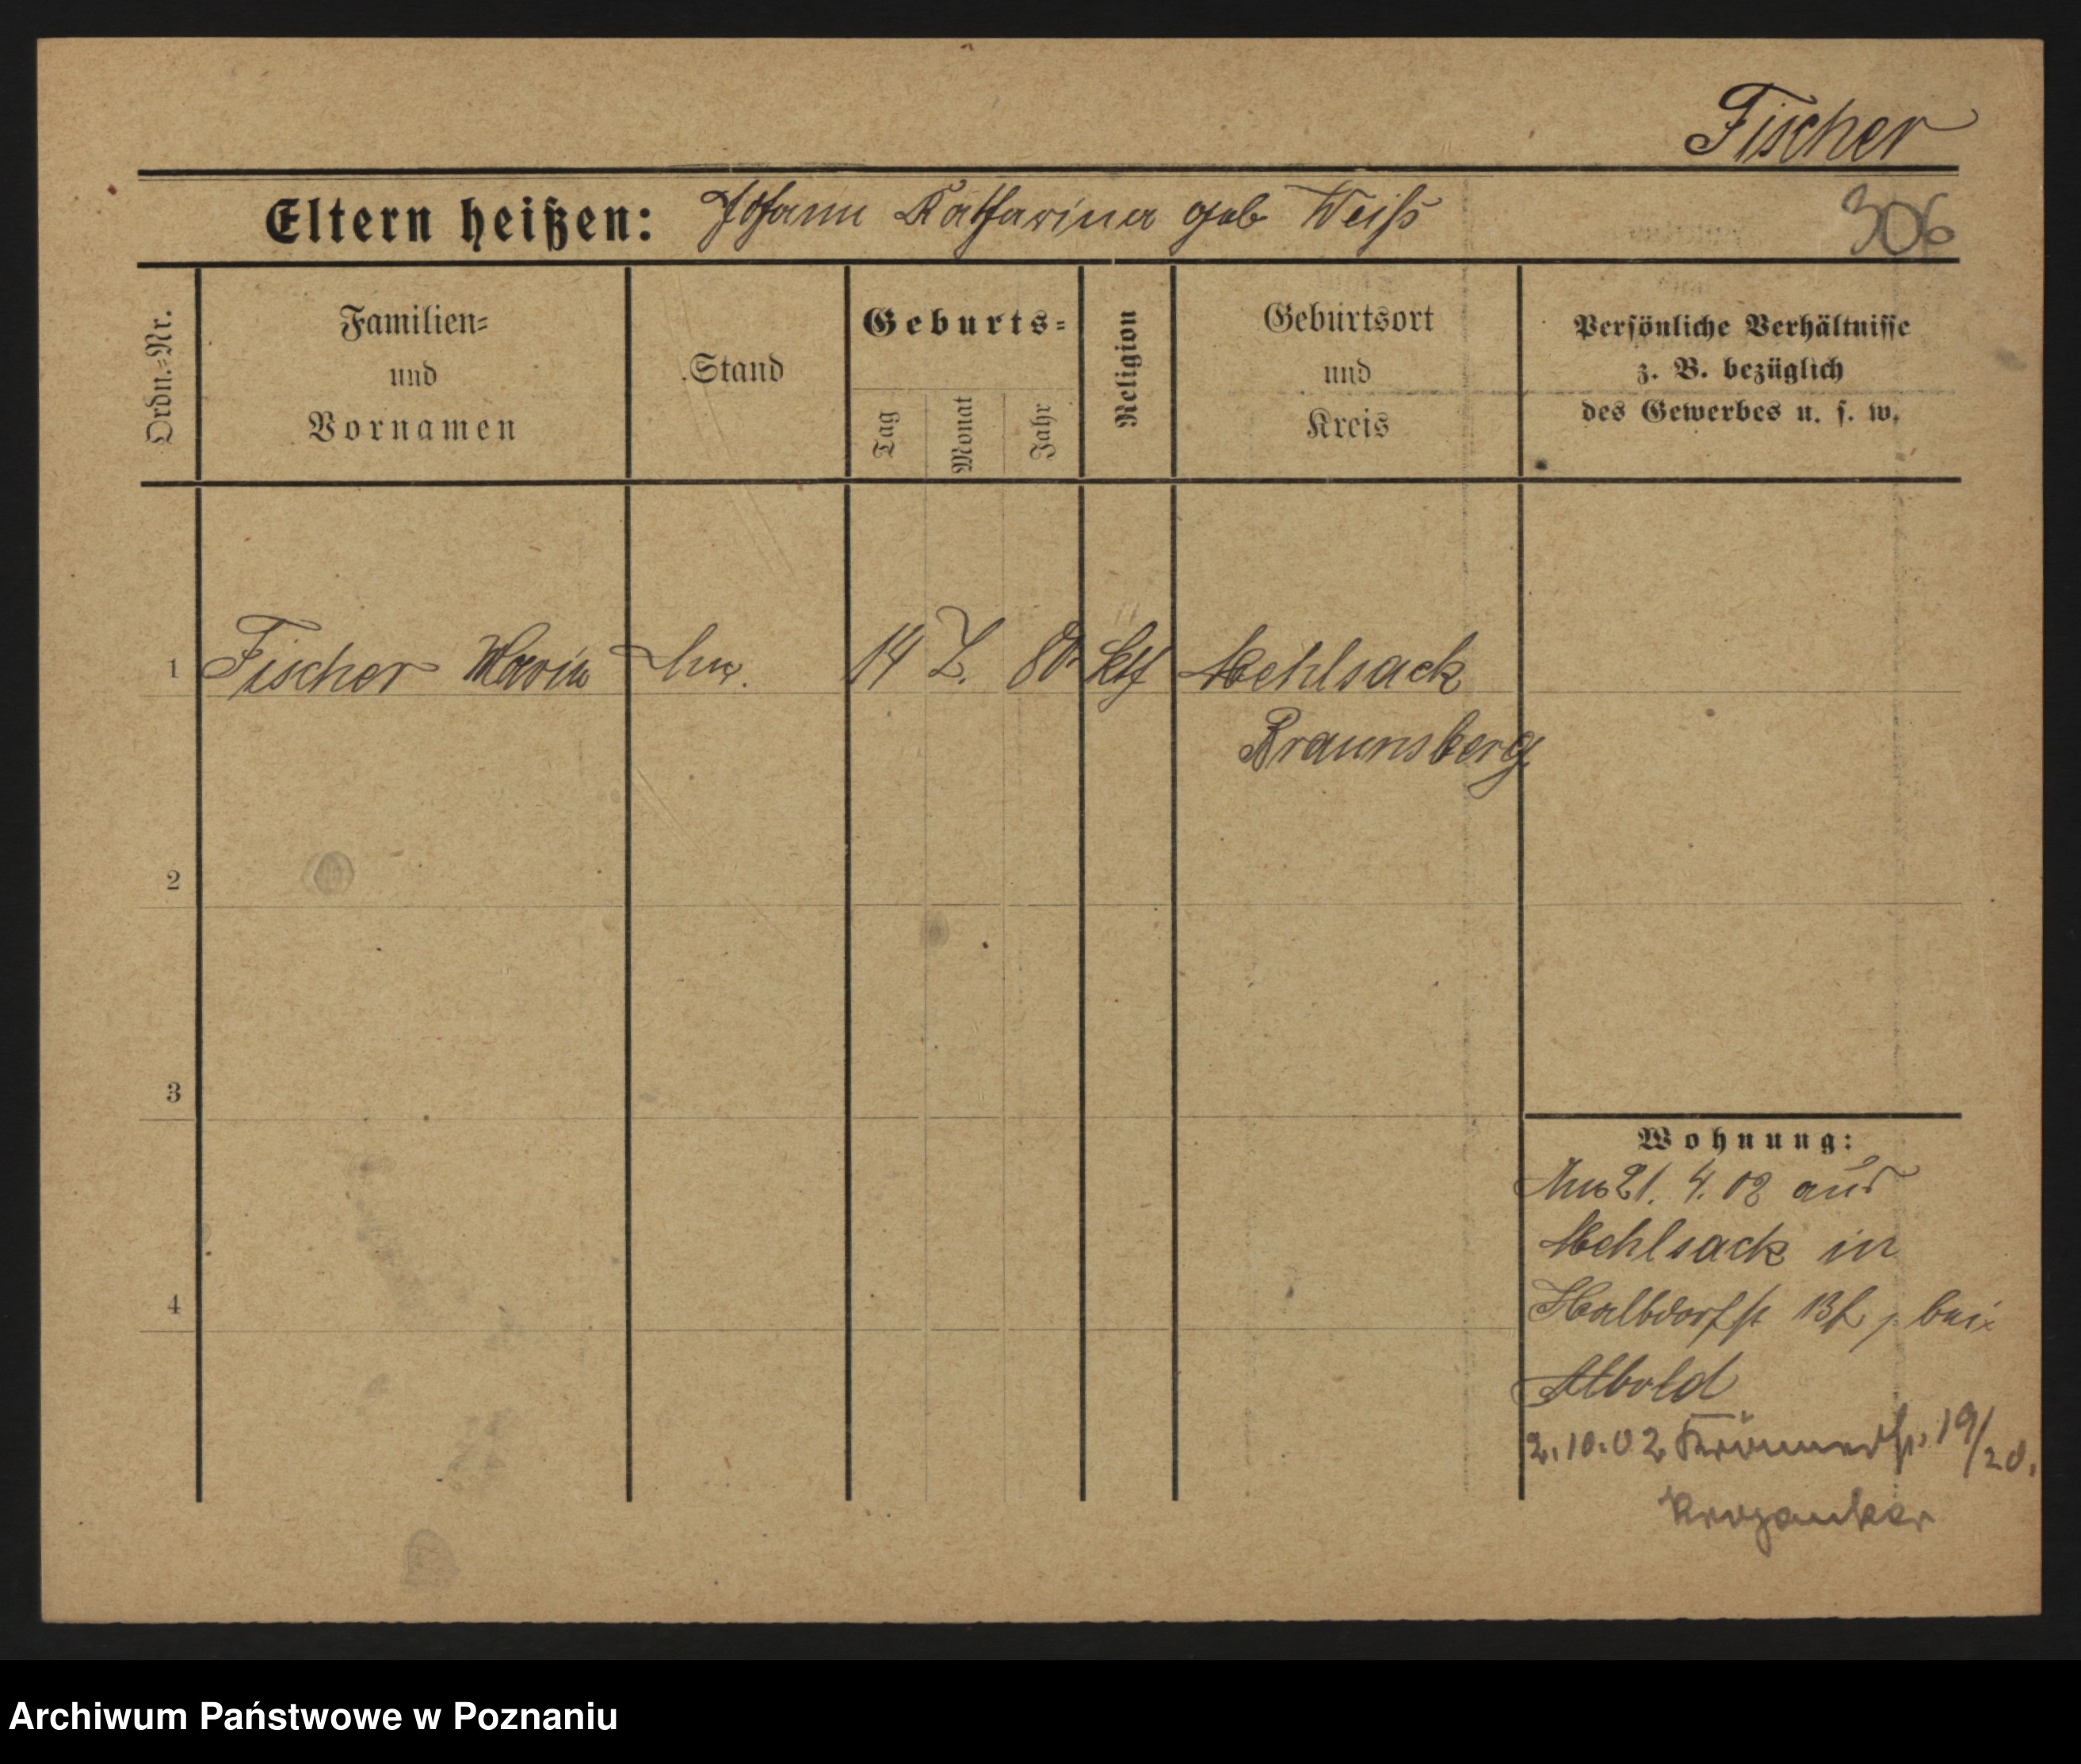 Fischer
Eltern heißen: Johann Katharina geb Weiß
306
Ordn.=Nr.
Familien=
und
Vornamen
Stand
Geburts=
Tag
Monat
Jahr
Religion
Geburtsort
und
Kreis
Persönliche Verhältnisse
z. B. bezüglich
des Gewerbes u. s. w.
1 Fischer Maria 14 80 kth Mehlsack
Braunsberg
2
3
4
Wohnung:
21. 4. 02 aus
Mehlsack in
Halbdorfst bei
2.10.02 19/20.
Archiwum Państwowe w Poznaniu